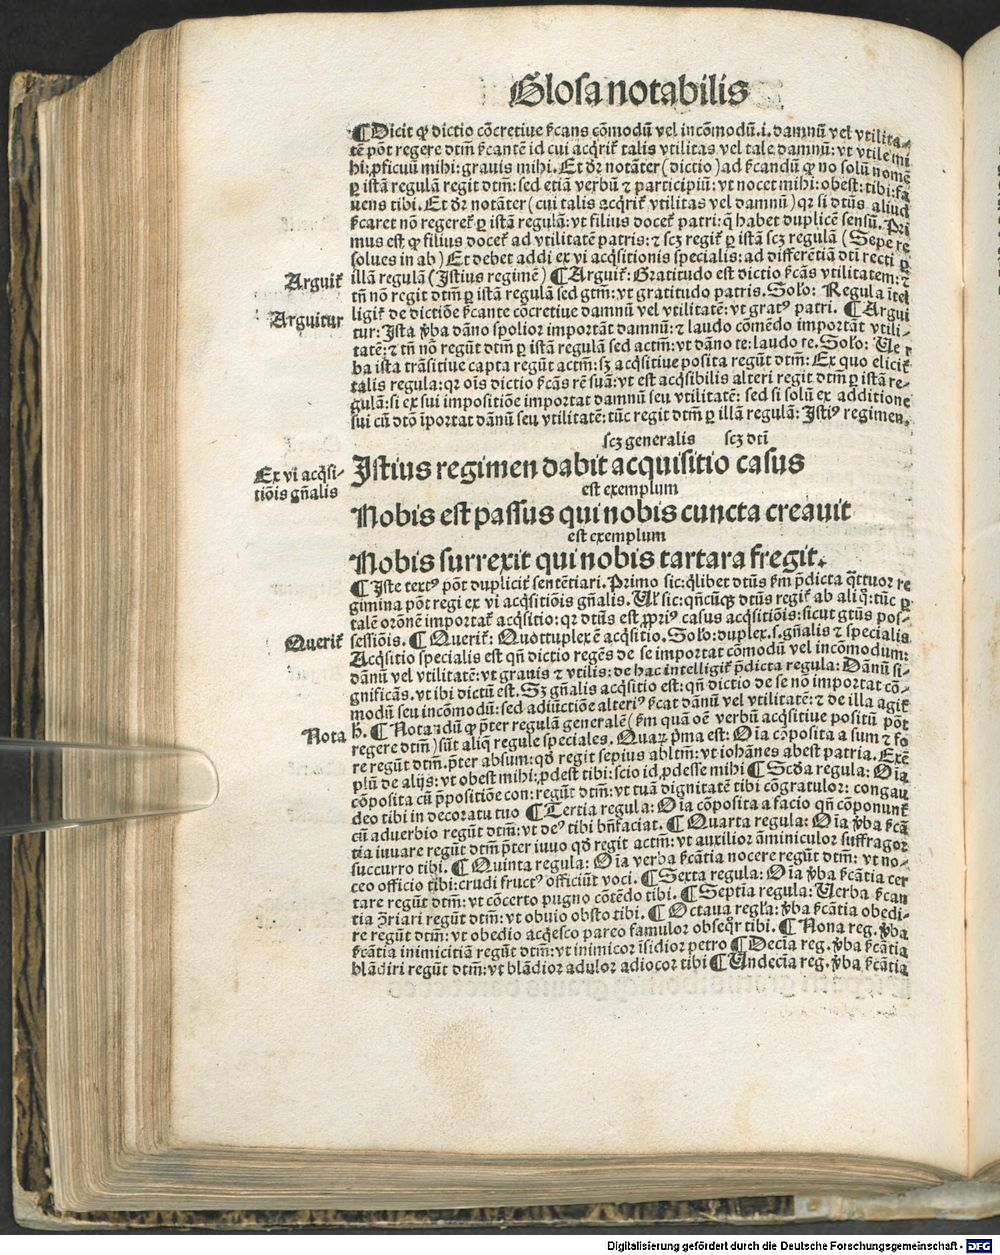 Glosa notabilis
¶ Dicit ꝙ dictio cōcretiue ſ̄cans cōmodū vel incōmodū.i. damnū vel vtilita⸗
tē pōt regere dtm̄ ſ̄cantē id cui acq̄rit᷑ talis vtilitas vel tale damnū: vt vtile mi
hi:ꝓficuū mihi:grauis mihi. Et dr̄ notāter (dictio) ad ſ̄candū ꝙ no solū nomē
ꝑ istā regulā regit dtm̄: sed etiā verbū ⁊ participiū: vt nocet mihi: obest: tibi: fa
uens tibi. Et dr̄ notāter (cui talis acq̄rit᷑ vtilitas vel damnū) qr si dtūs aliud
ſ̄caret nō regeret᷑ ꝑ istā regulā: vt filius docet᷑ patri: q̄ habet duplicē sensū. Pri
mus est ꝙ filius docet᷑ ad vtilitatē patris: ⁊ scꝫ regit᷑ ꝑ istā scꝫ regulā (Sepe re
solues in ab) Et debet addi ex vi acq̄sitionis specialis: ad differētiā dti recti ꝑ
Arguit᷑
illā regulā (Istius regimē) ¶ Arguit᷑: Gratitudo est dictio ſ̄cās vtilitatem: ⁊
tn̄ nō regit dtm̄ ꝑ istā regulā sed gtm̄: vt gratitudo patris. Solo: Regula ītel
Arguitur
ligit᷑ de dictiōe ſ̄cante cōcretiue damnū vel vtilitatē: vt gratꝰ patri. ¶ Argui
tur: Ista v̄ba dāno spolior importāt damnū: ⁊ laudo cōmēdo importāt vtili⸗
tatē: ⁊ tn̄ nō regūt dtm̄ ꝑ istā regulā sed actm̄: vt dāno te: laudo te. Solo: Ve r
ba ista trāsitiue capta regūt actm̄: sꝫ acq̄sitiue posita regūt dtm̄: Ex quo elicit᷑
talis regula: qr ois̄ dictio ſ̄cās rē suā: vt est acq̄sibilis alteri regit dtm̄ ꝑ istā re⸗
gulā: si ex sui impositiōe importat damnū seu vtilitatē: sed si solū ex additione
sui cū dtō īportat dānū seu vtilitatē: tūc regit dtm̄ ꝑ illā regulā: Istiꝰ regimen.
scꝫ generalis scꝫ dti
Ex vi acq̄si⸗
tiōis gn̄alis
Istius regimen dabit acquisitio casus
est exemplum
Nobis est passus qui nobis cuncta creauit
est exemplum
Nobis surrexit qui nobis tartara fregit.
¶ Iste textꝰ pōt duplicit᷑ sentētiari. Primo sic: qlibet dtūs ſm p̄dicta q̄ttuor re
gimina pōt regi ex vi acq̄sitiōis gn̄alis. Vl᷑ sic: qn̄cūqꝫ dtūs regit᷑ ab aliq̄: tūc ꝑ
talē orōnē importat᷑ acq̄sitio: qr dtūs est ꝓpriꝰ casus acq̄sitiōis: sicut gtūs pos⸗
Querit᷑
sessiōis. ¶ Querit᷑: Quottuplex ē acq̄sitio. Solo: duplex.s. gn̄alis ⁊ specialis
Acq̄sitio specialis est qn̄ dictio regēs de se importat cōmodū vel incōmodum:
dānū vel vtilitatē: vt grauis ⁊ vtilis: de hac intelligit᷑ p̄dicta regula: Dānū si⸗
gnificās. vt ibi dictū est. Sꝫ gn̄alis acq̄sitio est: qn̄ dictio de se nō importat cō⸗
modū seu incōmodū: sed adiūctiōe alteriꝰ ſ̄cat dānū vel vtilitatē: ⁊ de illa agit᷑
Nota
h̄. ¶ Notandū ꝙ p̄ter regulā generalē (ſm quā oē verbū acq̄sitiue positū pōt
regere dtm̄) sūt aliq̄ regule speciales. Quaꝝ p̄ma est: Oīa cōposita a sum ⁊ fo
re regūt dtm̄. p̄ter absum: qd̄ regit sepius abltm̄: vt iohānes abest patria. Exē
plū de alijs: vt obest mihi:ꝓdest tibi: scio id ꝓdesse mihi ¶ Scd̄a regula: Oīa
cōposita cū p̄positiōe con: regūt dtm̄: vt tuā dignitatē tibi cōgratulor: congau
deo tibi in decoratu tuo ¶ Tertia regula: Oīa cōposita a facio qn̄ cōponunt᷑
cū aduerbio regūt dtm̄: vt deꝰ tibi bn̄faciat. ¶ Quarta regula: Oīa v̄ba ſ̄cā
tia iuuare regūt dtm̄ p̄ter iuuo qd̄ regit actm̄: vt auxilior āminiculor suffragor
succurro tibi. ¶ Quinta regula: Oīa verba ſ̄cātia nocere regūt dtm̄: vt no⸗
ceo officio tibi: crudi fructꝰ officiūt voci. ¶ Sexta regula: Oīa v̄ba ſ̄cātia cer
tare regūt dtm̄: vt cōcerto pugno cōtēdo tibi. ¶ Septīa regula: Verba ſ̄can
tia ꝯ̄riari regūt dtm̄: vt obuio obsto tibi. ¶ Octaua regl̄a: v̄ba ſ̄cātia obedi⸗
re regūt dtm̄: vt obedio acq̄esco pareo famulor obseq̄r tibi. ¶ Nona reg. v̄ba
ſ̄cātia inimicitiā regūt dtm̄: vt inimicor īsidior petro ¶ Decīa reg. v̄ba ſ̄cātia
blādiri regūt dtm̄: vt blādior adulor adiocor tibi ¶ Undecīa reg. v̄ba ſ̄cātia
Digitalisierung gefördert durch die Deutsche Forschungsgemeinschaft - DFG